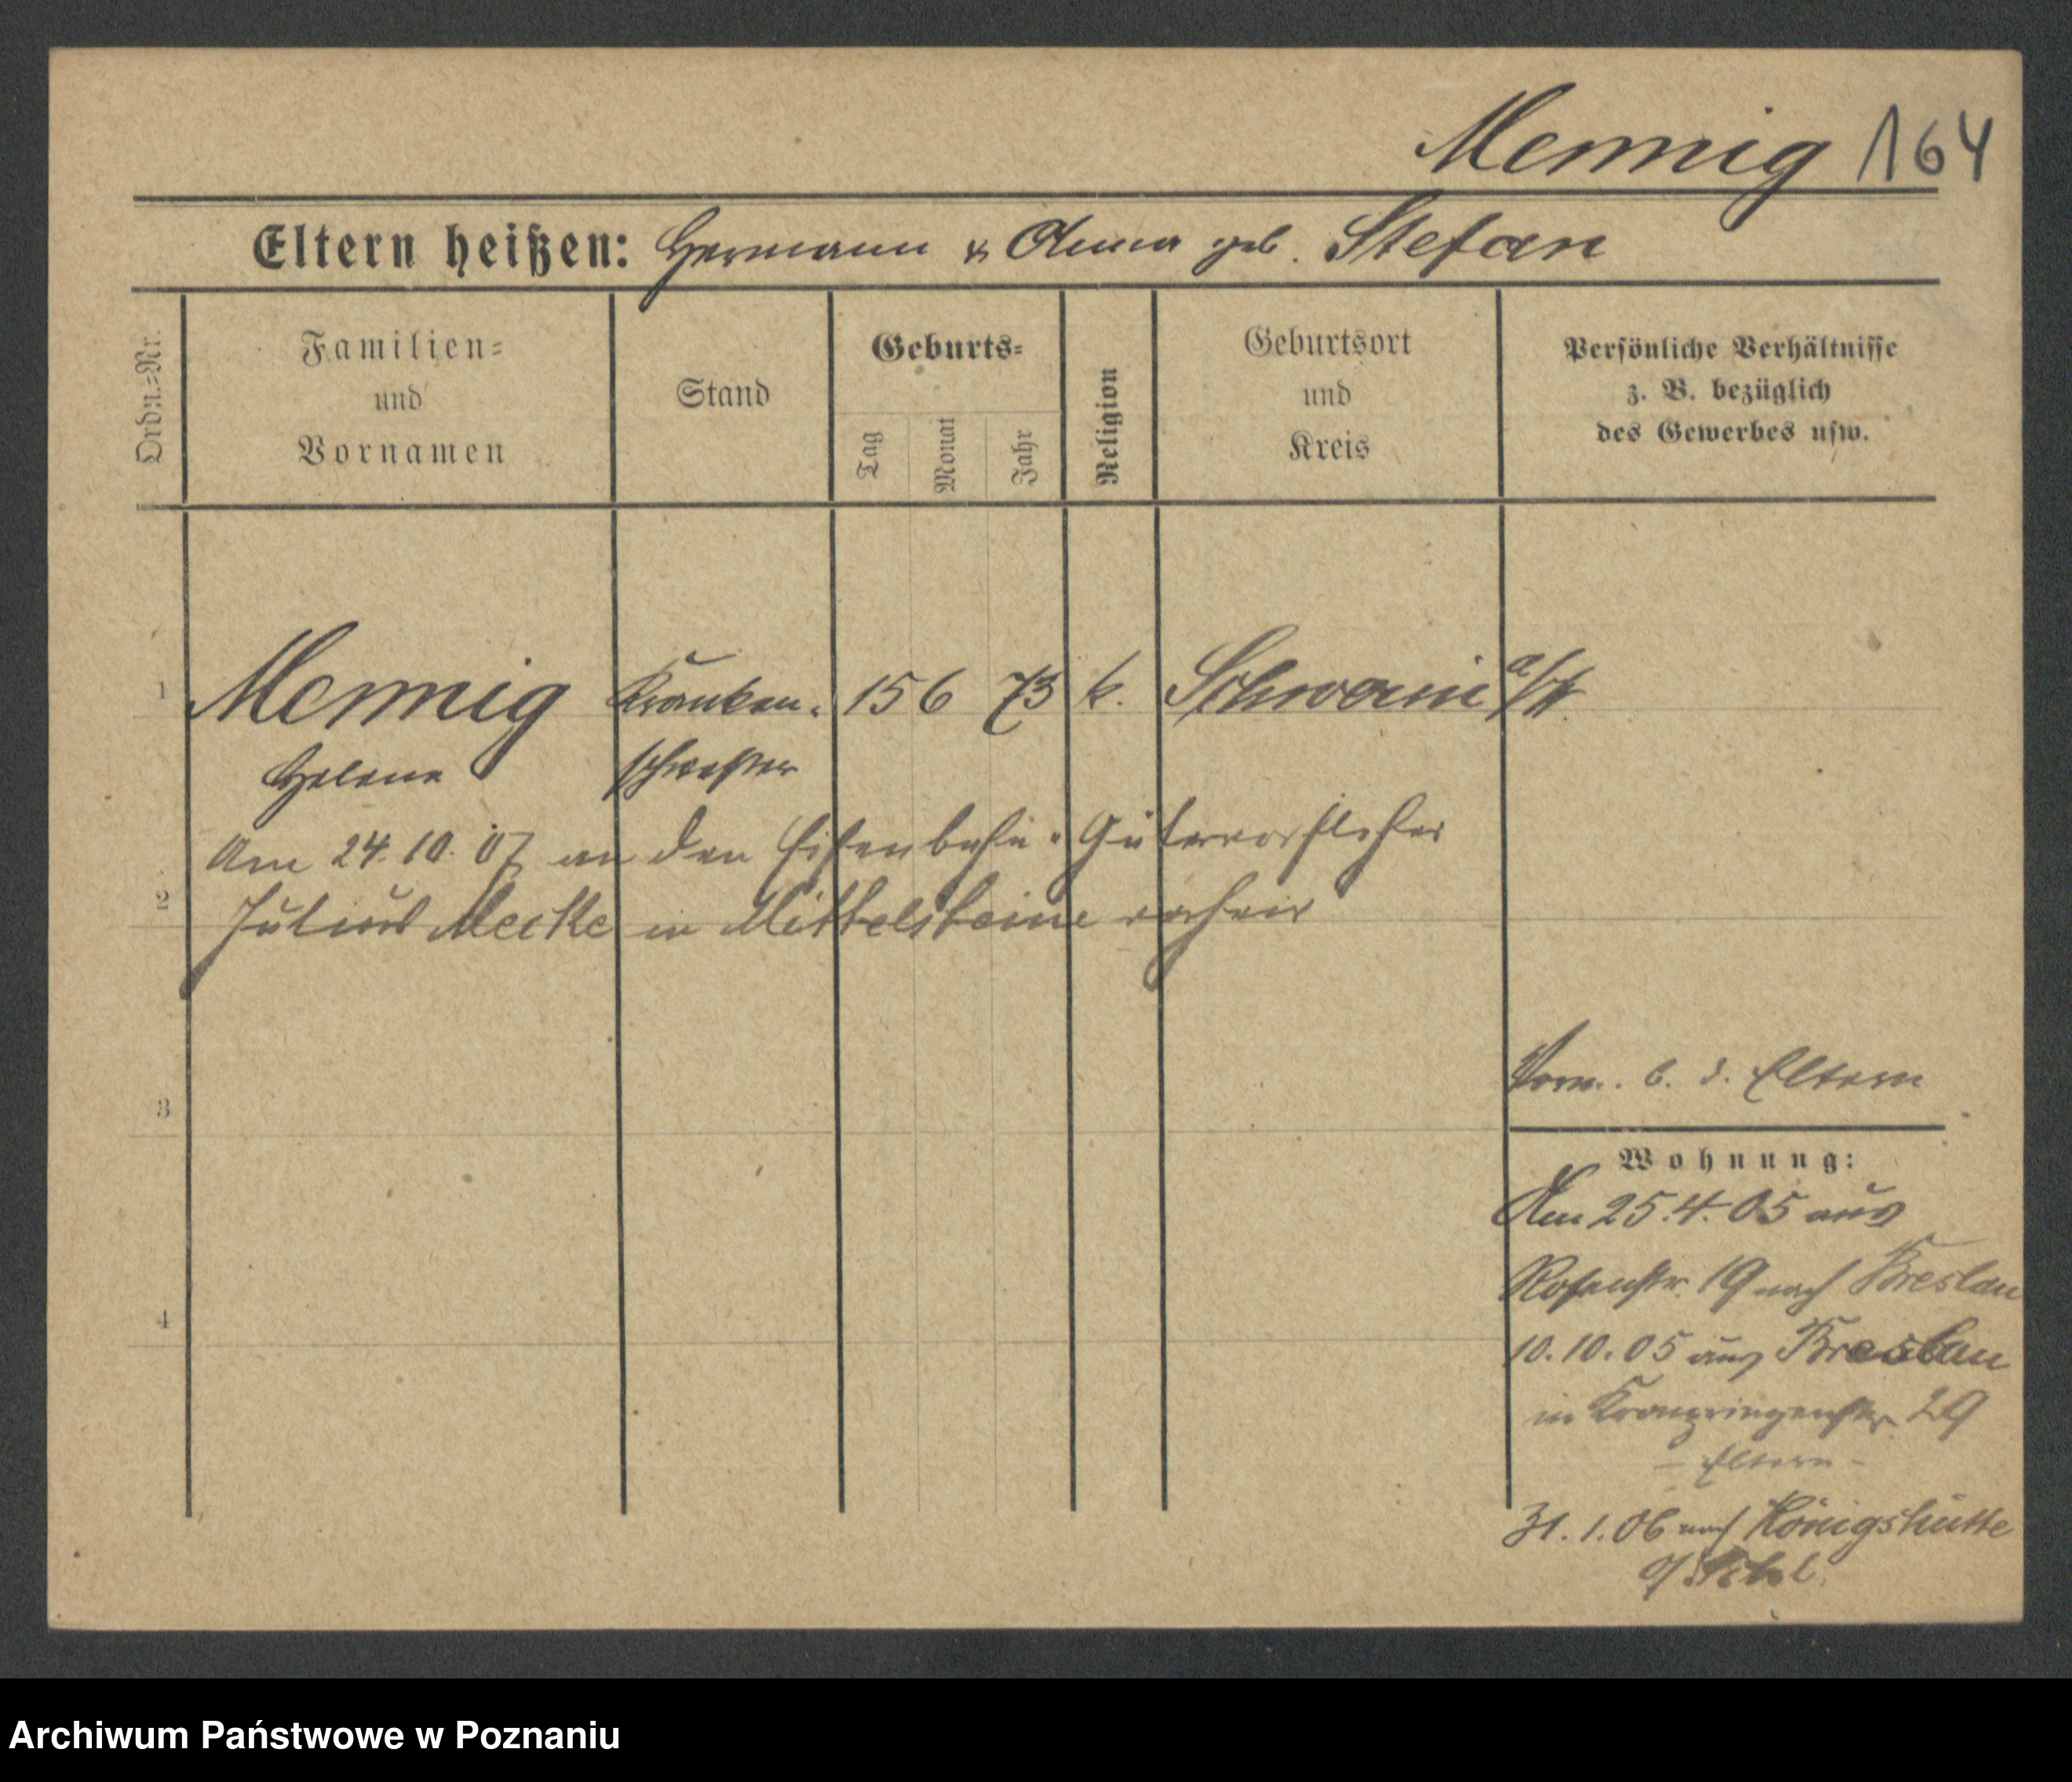 Mennig 164
Eltern heißen: Hermann & Anna geb. Stefan
Ordn.=Nr.
Familien=
und
Vornamen
Stand
Geburts=
Tag
Monat
Jahr
Religion
Geburtsort
und
Kreis
Persönliche Verhältnisse
z. B. bezüglich
des Gewerbes usw.
1 Mennig Kranken- 15 6 73 k.
Helene schwester
Am 24.10.07 an den Eisenbahn-Gütervorsteher
2 Julius in Mittelsteine verheir
3
4
b. d. Eltern
Wohnung:
Am 25.4.05 aus
Rosenstr. 19 nach Breslau
10.10.05 aus Breslau
in Kronprinzenstr. 29
- Eltern -
31.1.06 nach Königshütte
Archiwum Państwowe w Poznaniu